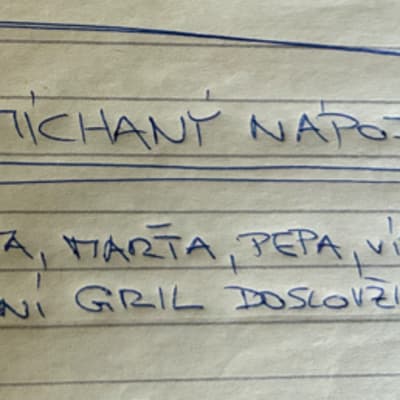 MÍCHANÝ NÁPOJ
A, MARŤA, PEPA, VÍ
NÍ GRIL DOSLOVŽI